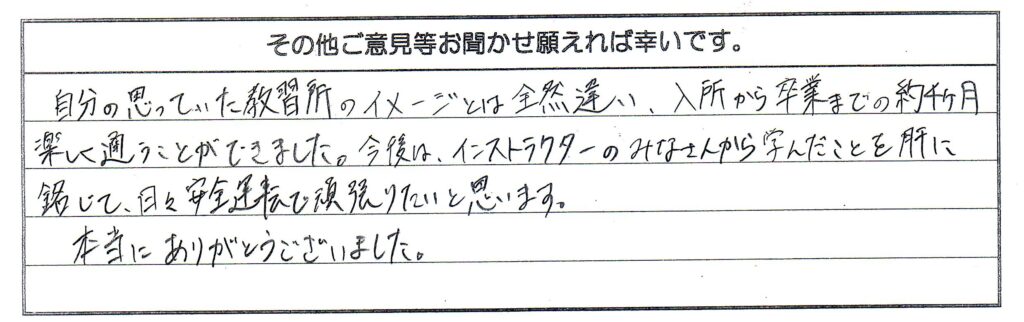 その他ご意見等お聞かせ願えれば幸いです。
自分の思っていた教習所のイメージとは全然違い、入所から卒業までの約4ヶ月
楽しく通うことができました。今後は、インストラクターのみなさんから学んだことを肝に
銘じて、日々安全運転で頑張りたいと思います。
本当にありがとうございました。